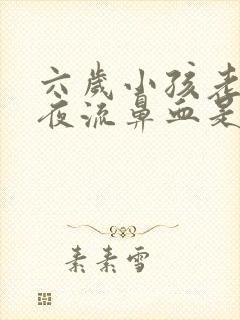 六岁小孩老
夜流鼻血是
素素雪